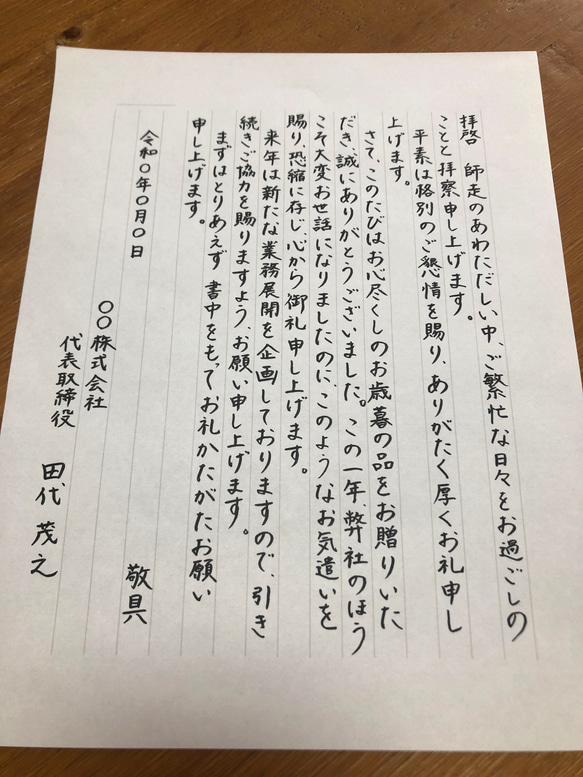 拝啓　師走のあわただしい中、ご繁忙な日々をお過ごしの
ことと拝察申し上げます。
平素は格別のご懇情を賜り、ありがたく厚くお礼申し
上げます。
さて、このたびはお心尽くしのお歳暮の品をお贈りいた
だき、誠にありがとうございました。この一年、弊社のほう
こそ大変お世話になりましたのに、このようなお気遣いを
賜り、恐縮に存じ、心から御礼申し上げます。
来年は新たな業務展開を企画しておりますので、引き
続きご協力を賜りますよう、お願い申し上げます。
まずはとりあえず書中をもってお礼かたがたお願い
申し上げます。
敬具
令和〇年〇月〇日
〇〇株式会社
代表取締役
田代茂之